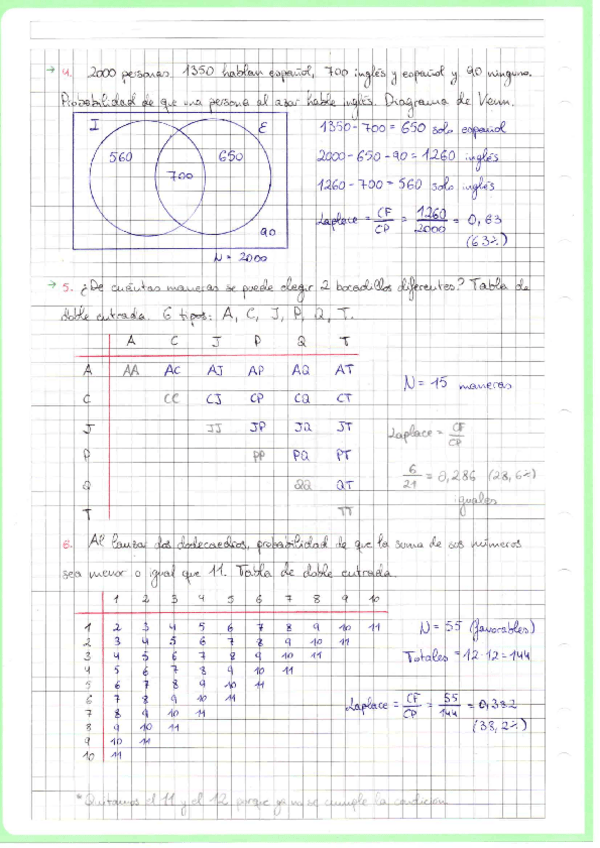 → 4. 2000 personas. 1350 hablan español, 700 inglés y español y 90 ninguno.
Probabilidad de que una persona al azar hable inglés. Diagrama de Venn.
I E
560 700 650
90
N = 2000
1350 - 700 = 650 solo español
2000 - 650 - 90 = 1260 inglés
1260 - 700 = 560 solo inglés
Laplace = CF/CP = 1260/2000 = 0,63
(63%)
→ 5. ¿De cuántas maneras se puede elegir 2 bocadillos diferentes? Tabla de
doble entrada. 6 tipos: A, C, J, P, Q, T.
A C J P Q T
A AA AC AJ AP AQ AT
C CC CJ CP CQ CT
J JJ JP JQ JT
P PP PQ PT
Q QQ QT
T TT
N = 15 maneras
Laplace = CF/CP
6/21 = 0,286 (28,6%)
iguales
6. Al lanzar dos dodecaedros, probabilidad de que la suma de sus números
sea menor o igual que 11. Tabla de doble entrada.
1 2 3 4 5 6 7 8 9 10
1 2 3 4 5 6 7 8 9 10 11
2 3 4 5 6 7 8 9 10 11
3 4 5 6 7 8 9 10 11
4 5 6 7 8 9 10 11
5 6 7 8 9 10 11
6 7 8 9 10 11
7 8 9 10 11
8 9 10 11
9 10 11
10 11
N = 55 (favorables)
Totales = 12·12 = 144
Laplace = CF/CP = 55/144 = 0,382
(38,2%)
*Quitamos el 11 y el 12 porque ya no se cumple la condición